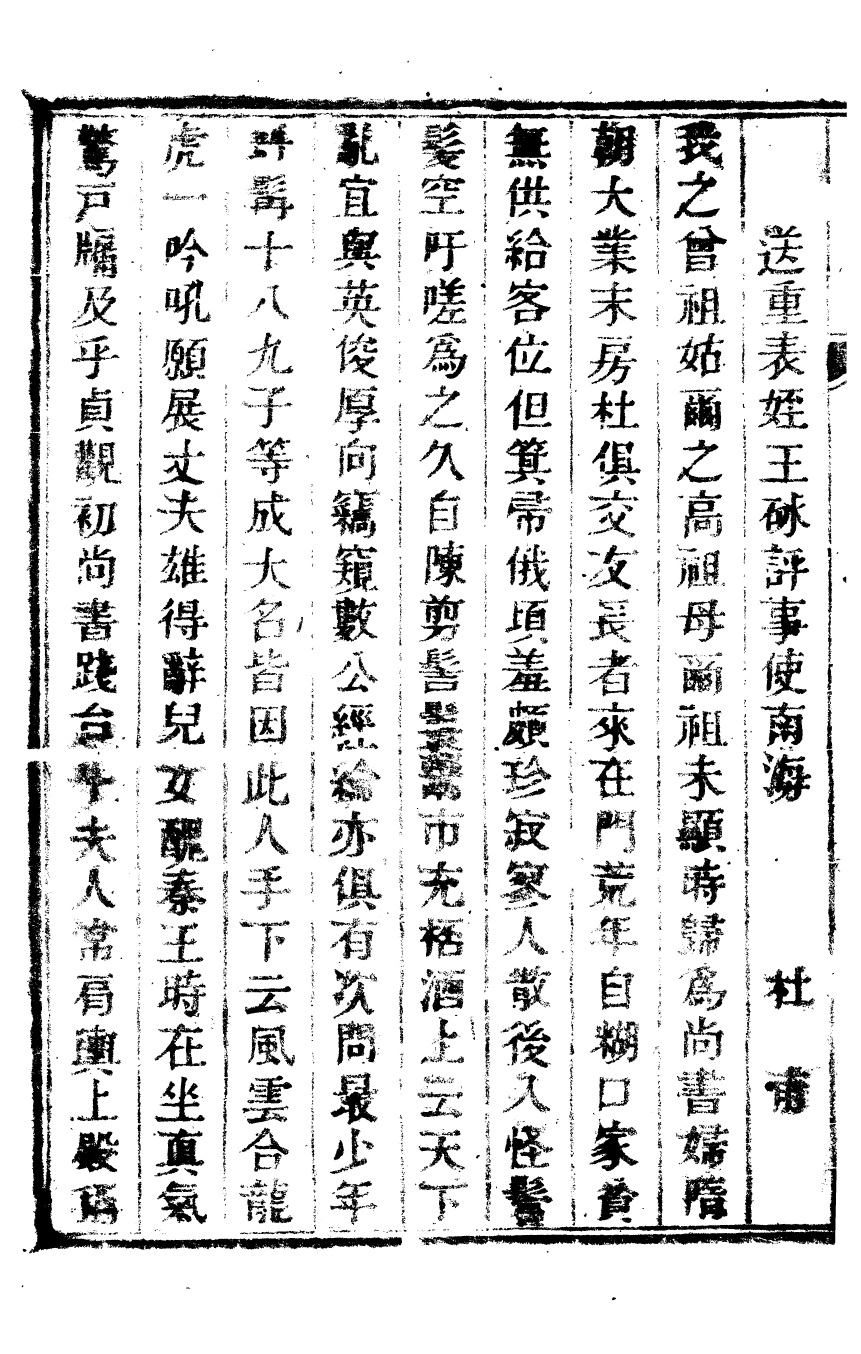 送重表姪王砅評事使南海　杜甫
我之曾祖姑爾之高祖母爾祖未顯時歸爲尚書婦隋
朝大業末房杜俱交友長者來在門荒年自糊口家貧
無供給客位但箕帚俄頃羞頗珍寂寥人散後入怪鬢
髮空吁嗟爲之久自陳剪髻鬟鬻市充杯酒上云天下
亂宜與英俊厚向竊窺數公經綸亦俱有次問最少年
虬髯十八九子等成大名皆因此人手下云風雲合龍
虎一吟吼願展丈夫雄得辭兒女醜秦王時在坐真氣
驚戸牖及乎貞觀初尚書踐台斗夫人常肩輿上殿稱